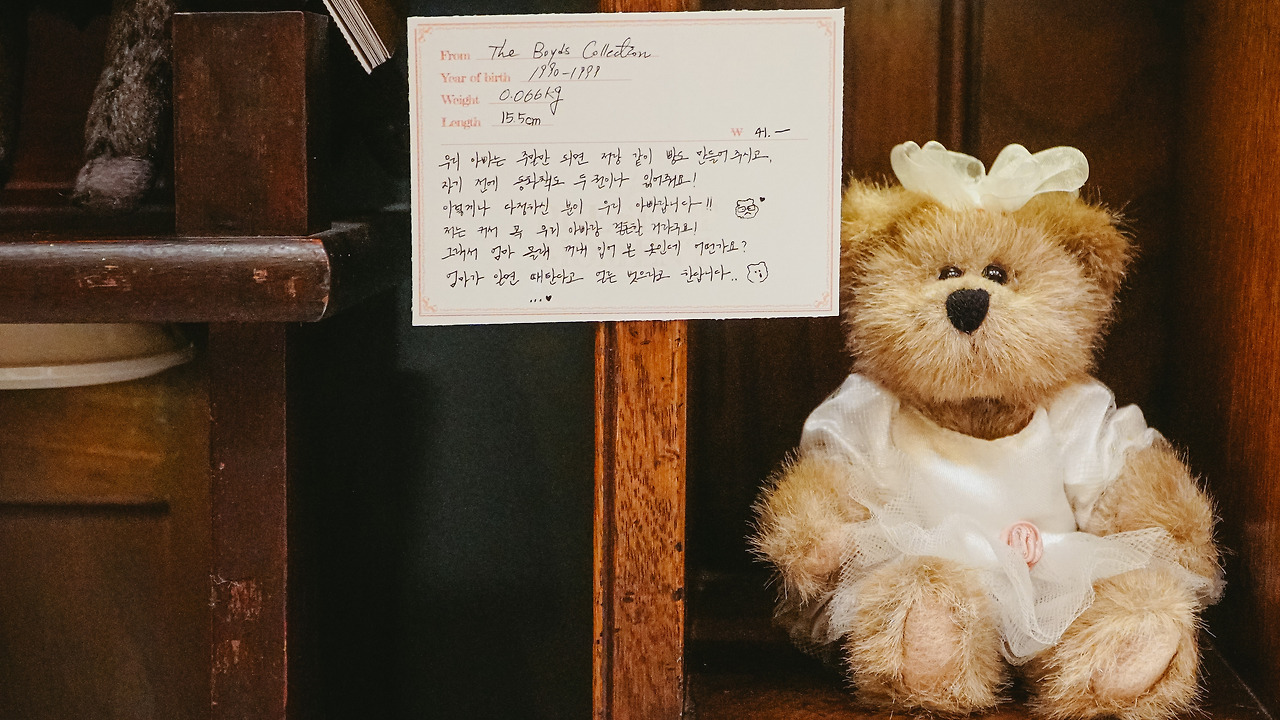 From The Boyds Collection
Year of birth 1990-1999
Weight 0.066kg
Length 15.5cm
₩ 41.-
우리 아빠는 주말만 되면 저랑 같이 빵도 만들어 주시고,
자기 전에 동화책도 두 권이나 읽어줘요!
이렇게나 다정하신 분이 우리 아빠랍니다~!!
저는 커서 꼭 우리 아빠랑 결혼할 거라구요!
그래서 엄마 몰래 꺼내 입어 본 옷인데 어떤가요?
엄마가 알면 때탄다고 얼른 벗으라고 한답니다..
...♥